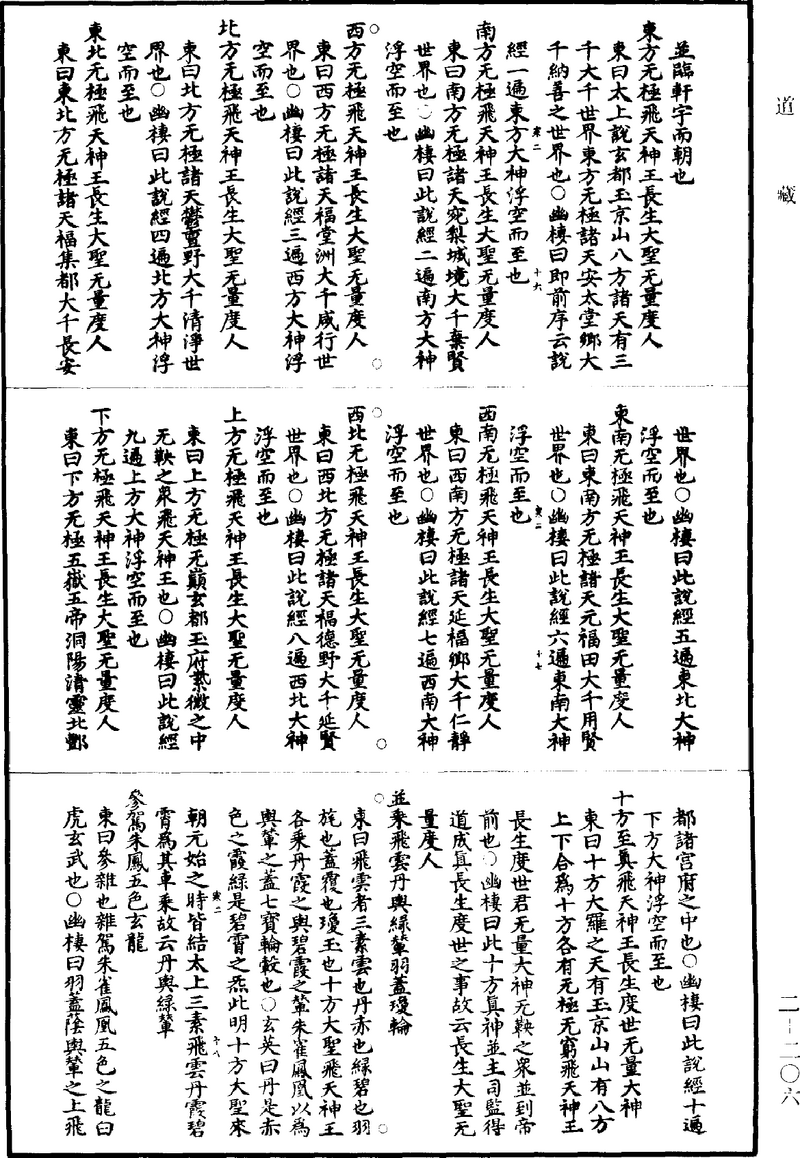 道藏
並臨軒宇而朝也
東方无極飛天神王長生大聖无量度人
東曰太上說玄都玉京山八方諸天有三
千大千世界東方无極諸天安太堂鄉大
千納善之世界也○幽棲曰即前序云說
經一遍東方大神浮空而至也
寒二
十六
南方无極飛天神王長生大聖无量度人
東曰南方无極諸天宛梨城境大千棄賢
世界也○幽棲曰此說經二遍南方大神
浮空而至也
西方无極飛天神王長生大聖无量度人
東曰西方无極諸天福堂洲大千咸行世
界也○幽棲曰此說經三遍西方大神浮
空而至也
北方无極飛天神王長生大聖无量度人
東曰北方无極諸天鬱單野大千清淨世
界也○幽棲曰此說經四遍北方大神浮
空而至也
東北无極飛天神王長生大聖无量度人
東曰東北方无極諸天福集都大千長安
世界也○幽棲曰此說經五遍東北大神
浮空而至也
東南无極飛天神王長生大聖无量度人
東曰東南方无極諸天元福田大千用賢
世界也○幽棲曰此說經六遍東南大神
寒二
十七
浮空而至也
西南无極飛天神王長生大聖无量度人
東曰西南方无極諸天延福鄉大千仁靜
世界也○幽棲曰此說經七遍西南大神
浮空而至也
西北无極飛天神王長生大聖无量度人
東曰西北方无極諸天福德野大千延賢
世界也○幽棲曰此說經八遍西北大神
浮空而至也
上方无極飛天神王長生大聖无量度人
東曰上方无極无巔玄都玉府紫微之中
无鞅之眾飛天神王也○幽棲曰此說經
九遍上方大神浮空而至也
下方无極飛天神王長生大聖无量度人
東曰下方无極五嶽五帝洞陽清靈北酆
都諸宮府之中也○幽棲曰此說經十遍
下方大神浮空而至也
十方至真飛天神王長生度世无量大神
東曰十方大羅之天有玉京山山有八方
上下合為十方各有无極无窮飛天神王
長生度世君无量大神无鞅之眾並到帝
前也○幽棲曰此十方真神並主司監得
道成真長生度世之事故云長生大聖无
量度人
並乘飛雲丹輿綠輦羽蓋瓊輪
東曰飛雲者三素雲也丹赤也綠碧也羽
旄也蓋覆也瓊玉也十方大聖飛天神王
各乘丹霞之輿碧霞之輦朱雀鳳凰以為
輿輦之蓋七寶輪轂也○玄英曰丹是赤
色之霞綠是碧霄之炁此明十方大聖來
寒二
十八
朝元始之時皆結太上三素飛雲丹霞碧
霄為其車乘故云丹輿綠輦
參駕朱鳳五色玄龍
東曰參雜也雜駕朱雀鳳凰五色之龍白
虎玄武也○幽棲曰羽蓋蔭輿輦之上飛
二-二〇六